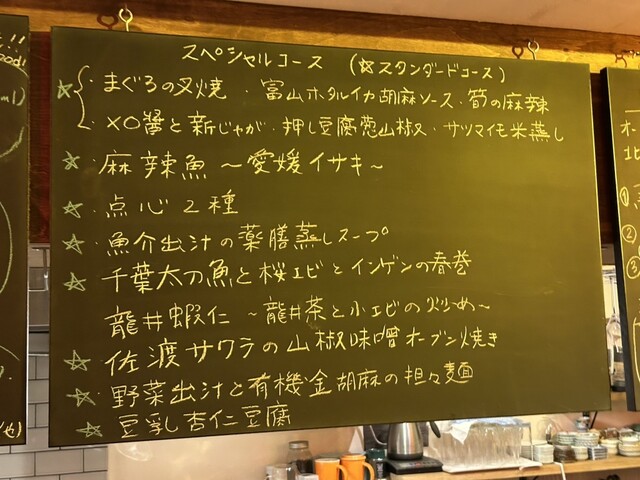 スペシャルコース (☆スタンダードコース)
☆ ・まぐろの叉焼 ・富山ホタルイカ胡麻ソース・筍の麻辣
・XO醬と新じゃが・押し豆腐葱山椒・サツマイモ米蒸し
☆・麻辣魚 〜愛媛イサキ〜
☆・点心2種
☆・魚介出汁の薬膳蒸しスープ
☆・千葉太刀魚と桜エビとインゲンの春巻
龍井蝦仁 〜龍井茶と小エビの炒め〜
☆・佐渡サワラの山椒味噌オーブン焼き
☆・野菜出汁と有機金胡麻の担々麺
☆・豆乳杏仁豆腐
オ
北
①
②
③